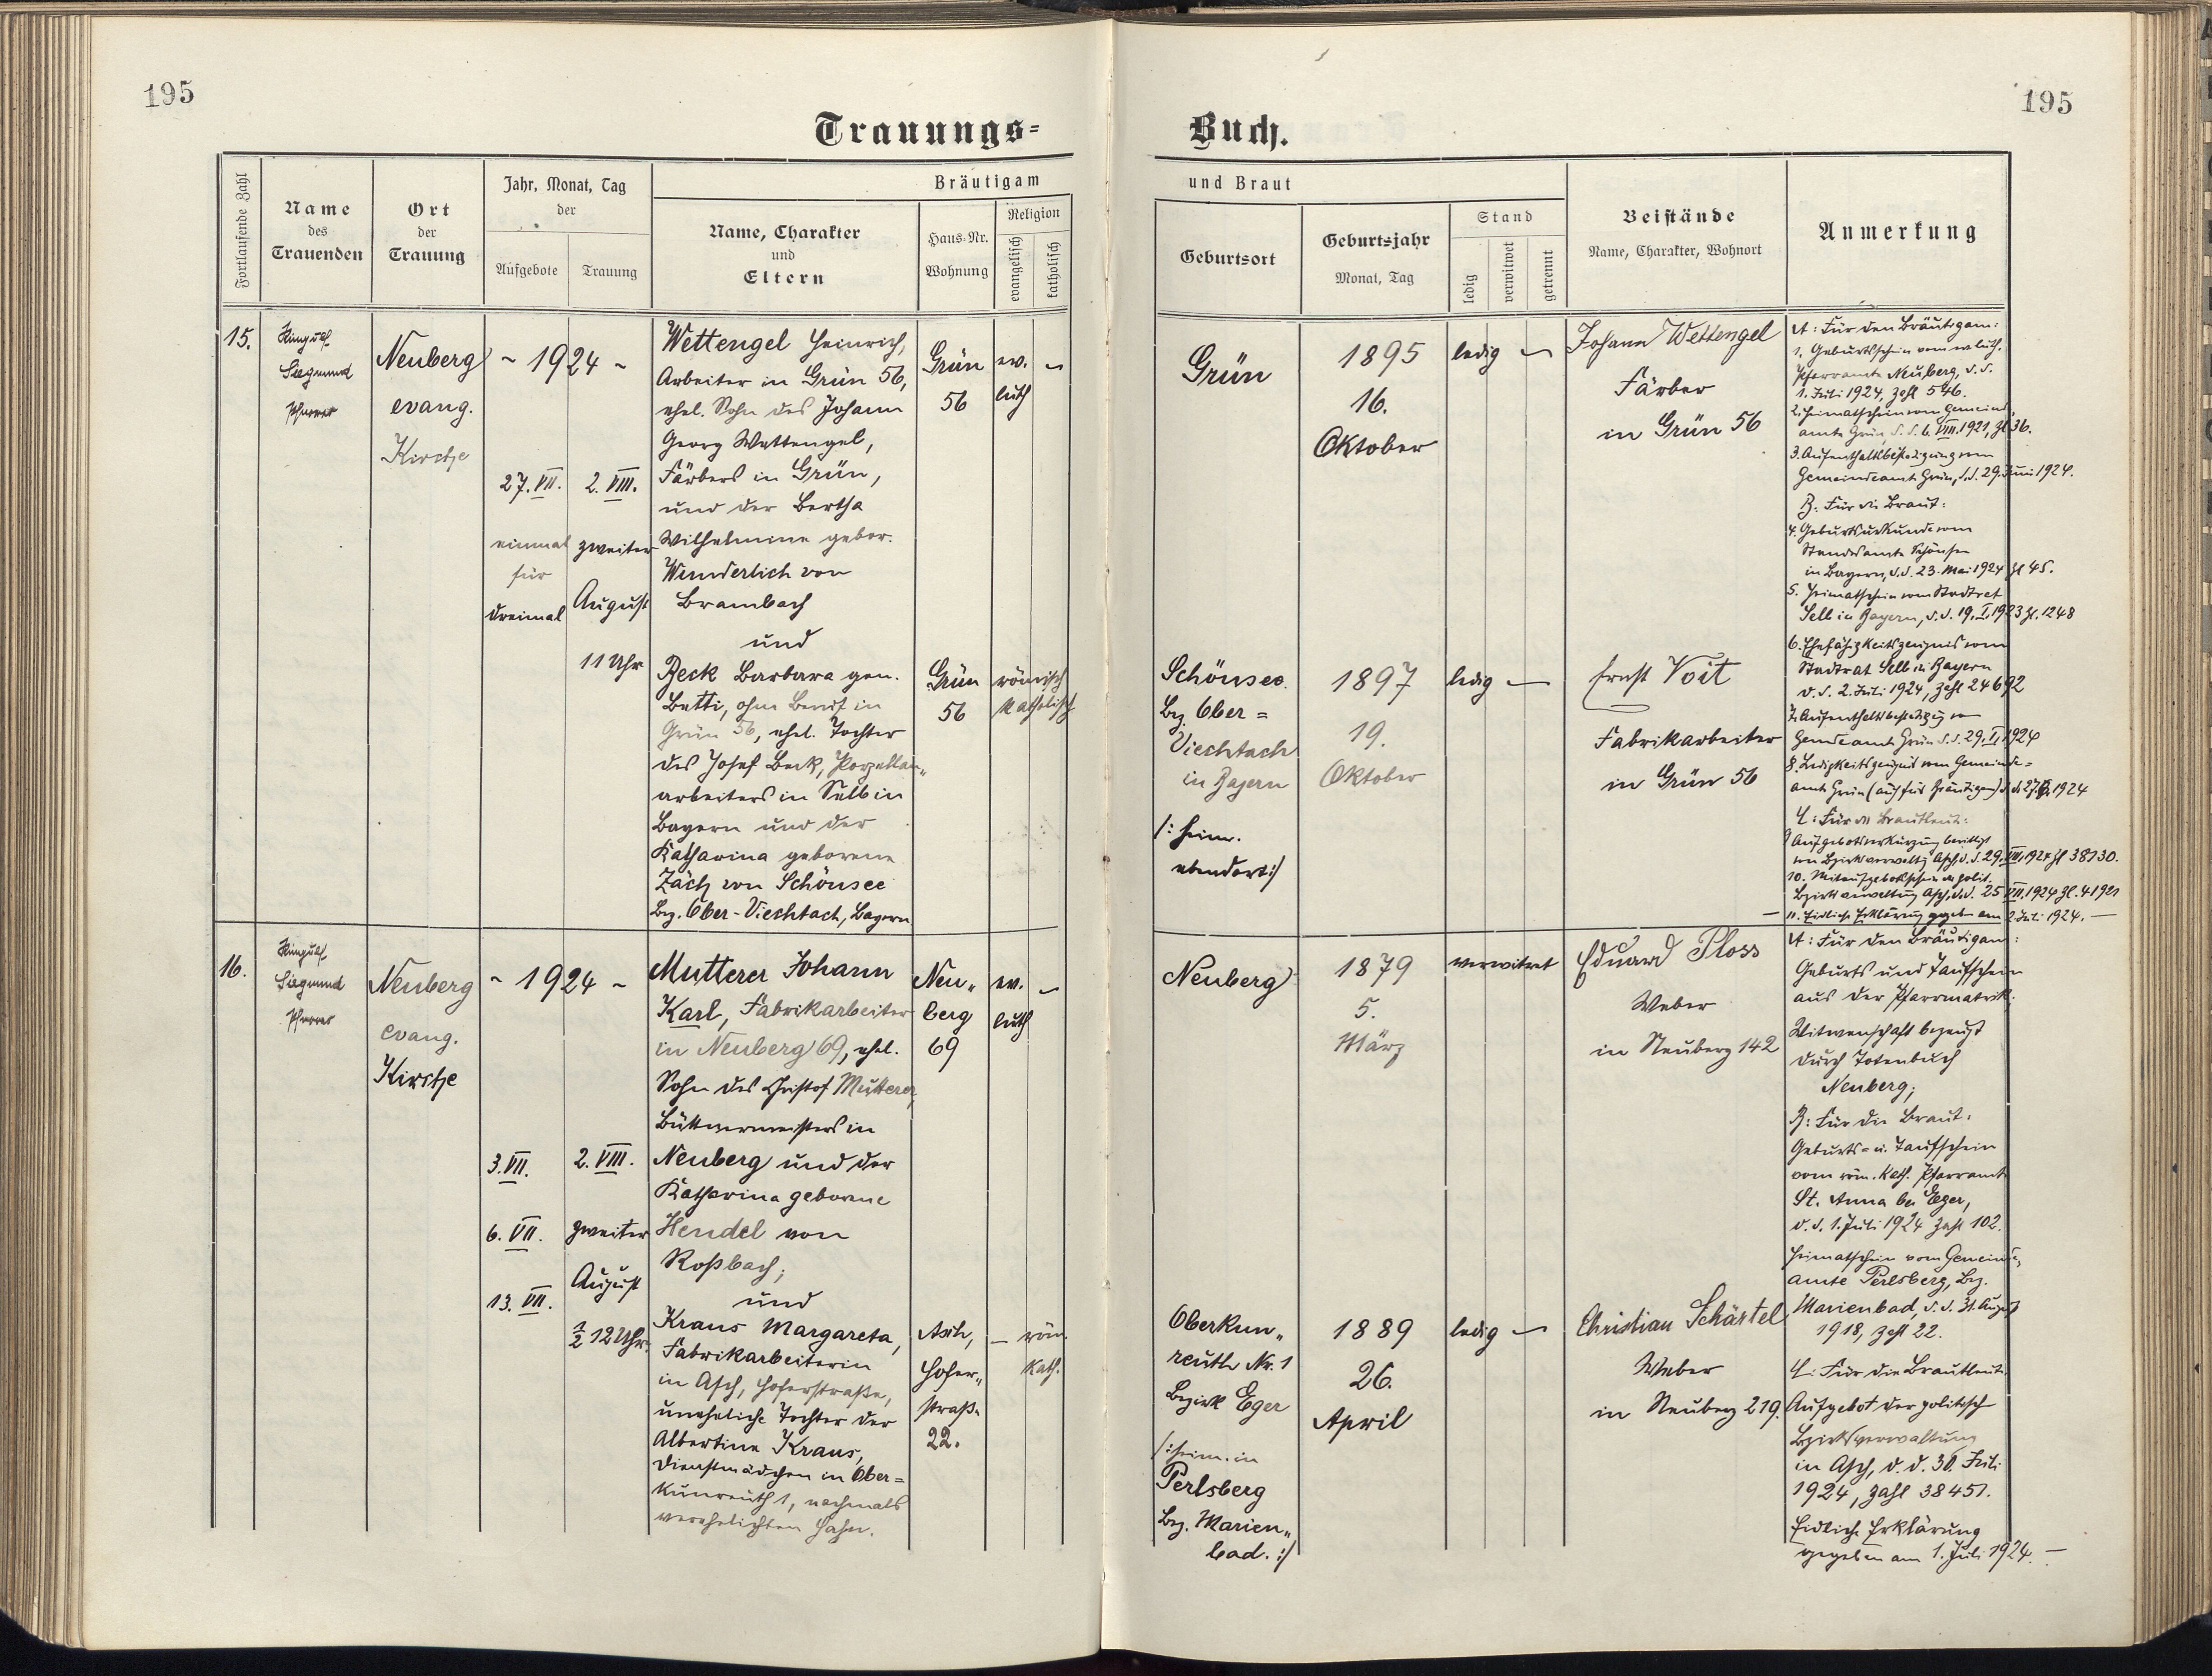 195
195
Trauungs=
Buch.
Fortlaufende Zahl
Name
des
Trauenden
Ort
der
Trauung
Jahr, Monat, Tag
der
Aufgebote
Trauung
Bräutigam
Name, Charakter
und
Eltern
Haus-Nr.
Wohnung
Religion
evangelisch
katholisch
und Braut
Geburtsort
Geburtsjahr
Monat, Tag
Stand
ledig
verwitwet
getrennt
Beistände
Name, Charakter, Wohnort
Anmerkung
15.
Siegmund
Pfarrer
Neuberg
evang.
Kirche
~ 1924 ~
27. VII.
einmal
für
dreimal
2. VIII.
zweiter
August
11 Uhr
Wettengel Heinrich,
Arbeiter in Grün 56,
ehel. Sohn des Johann
Georg Wettengel,
Färbers in Grün,
und der Bertha
Wilhelmine gebor.
Wunderlich von
Brambach
und
Beck Barbara gen.
Betti, ohne Beruf in
Grün 56, ehel. Tochter
des Josef Beck, Porzellan„
arbeiters in Selb in
Bayern und der
Katharina geborene
Zäch von Schönsee
Bez. Ober-Viechtach, Bayern
Grün
56
ev.
luth
~
Grün
56
römisch
katholisch
Grün
1895
16.
Oktober
ledig ~
Johann Wettengel
Färber
in Grün 56
Schönsee
Bez. Ober=
Viechtach
in Bayern
/: heim.
ebendort :/
1897
19.
Oktober
ledig —
Ernst Voit
Fabrikarbeiter
in Grün 56
A: Für den Bräutigam:
1. Geburtsschein vom ev. luth.
Pfarramte Neuberg, d. d.
1. Juli 1924, Zahl 546.
2. Heimatschein vom Gemeinde„
amte Grün, d. d. 6. VIII. 1921, Zl 36.
3. Aufenthaltsbestätigung vom
Gemeindeamte Grün, d. d. 29. Juni 1924.
B: Für die Braut:
4. Geburtsurkunde vom
Standesamte Schönsee
in Bayern, d. d. 23. Mai 1924 Zl 45.
5. Heimatschein vom Stadtrat
Selb in Bayern, d. d. 19. I. 1923 Zl. 1248
6. Ehefähigkeitszeugnis vom
Stadtrat Selb in Bayern
d. d. 2. Juli 1924, Zahl 24692
7. Aufenthaltsbestätigung vom
Gemdeamte Grün d. d. 1924
8. Ledigkeitszeugnis vom Gemeinde=
amte Grün (auch für Bräutigam) 1924
C: Für die Brautleute:
9. Aufgebotsverkürzung bewilligt
von Bezirksverwaltg Asch, d. d. 29. VII. 1924 Zl 38730.
10. Mitaufgebotsschein der polit.
Bezirksverwaltung Asch, d. d. 25 VII. 1924 Zl. 41921
— 11. Eidliche Erklärung gegeben am 2. Juli 1924. —
16.
Siegmund
Pfarrer
Neuberg
evang.
Kirche
~ 1924 ~
3. VII.
6. VII.
13. VII.
2. VIII.
zweiter
August
½ 12 Uhr.
Mutterer Johann
Karl, Fabrikarbeiter
in Neuberg 69, ehel.
Sohn des Christof Mutterer,
Büttnermeisters in
Neuberg und der
Katharina geborne
Hendel von
Roßbach;
und
Kraus Margareta,
Fabrikarbeiterin
in Asch, Hoferstraße,
uneheliche Tochter der
Albertine Kraus,
Dienstmädchen in Ober=
kunreuth 1, nachmals
verehelichten Hahn.
Neu„
berg
69
ev.
luth
~
Asch,
Hofer„
straße
22.
— röm.
kath.
Neuberg
1879
5.
März
verwitwet
Eduard Ploss
Weber
in Neuberg 142
Oberkun„
reuth Nr. 1
Bezirk Eger
/: heim. in
Perlsberg
Bez. Marien„
bad. :/
1889
26.
April
ledig ~
Christian Schärtel
Weber
in Neuberg 219.
A: Für den Bräutigam:
Geburts und Taufschein
aus der Pfarrmatrik;
Witwenschaft bezeugt
durch Totenbuch
Neuberg;
B: Für die Braut:
Geburts= u. Taufschein
vom röm. kath. Pfarramte
St. Anna bei Eger,
d. d. 1. Juli 1924 Zahl 102.
Heimatschein vom Gemeinde„
amte Perlsberg, Bez.
Marienbad, d. d. 31. August
1918, Zahl 22.
C: Für die Brautleute:
Aufgebot der politisch
Bezirksverwaltung
in Asch, d. d. 30. Juli
1924, Zahl 38451.
Eidliche Erklärung
gegeben am 1. Juli 1924. —